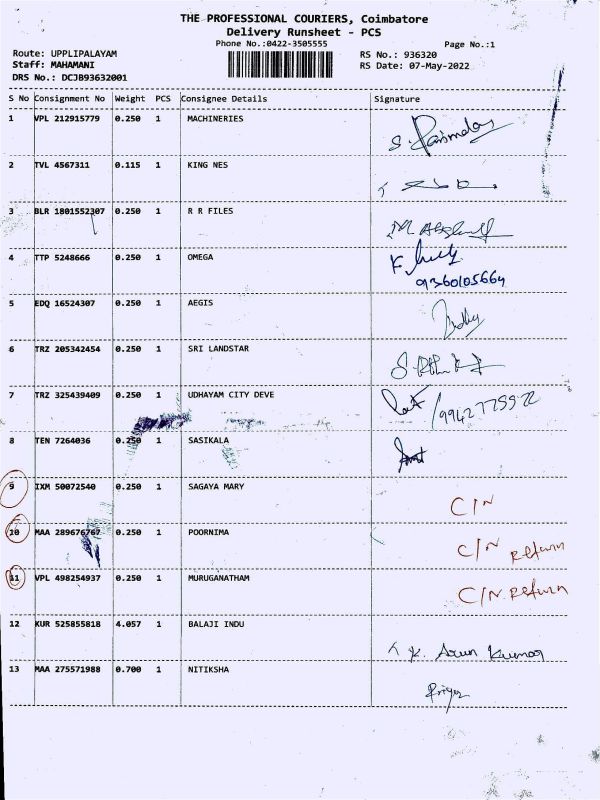 THE PROFESSIONAL COURIERS, Coimbatore
Delivery Runsheet - PCS
Phone No.:0422-3505555
Page No.:1
Route: UPPLIPALAYAM
RS No.: 936320
Staff: MAHAMANI
RS Date: 07-May-2022
DRS No.: DCJB93632001
S No Consignment No Weight PCS Consignee Details Signature
1 VPL 212915779 0.250 1 MACHINERIES
2 TVL 4567311 0.115 1 KING NES
3 BLR 1801552307 0.250 1 R R FILES
4 TTP 5248666 0.250 1 OMEGA
9360105664
5 EDQ 16524307 0.250 1 AEGIS
6 TRZ 205342454 0.250 1 SRI LANDSTAR
7 TRZ 325439409 0.250 1 UDHAYAM CITY DEVE
8 TEN 7264036 0.250 1 SASIKALA
9 IXM 50072540 0.250 1 SAGAYA MARY C/N
10 MAA 289676769 0.250 1 POORNIMA C/N Return
11 VPL 498254937 0.250 1 MURUGANATHAM C/N Return
12 KUR 525855818 4.057 1 BALAJI INDU K. Arun Kumar
13 MAA 275571988 0.700 1 NITIKSHA Priya